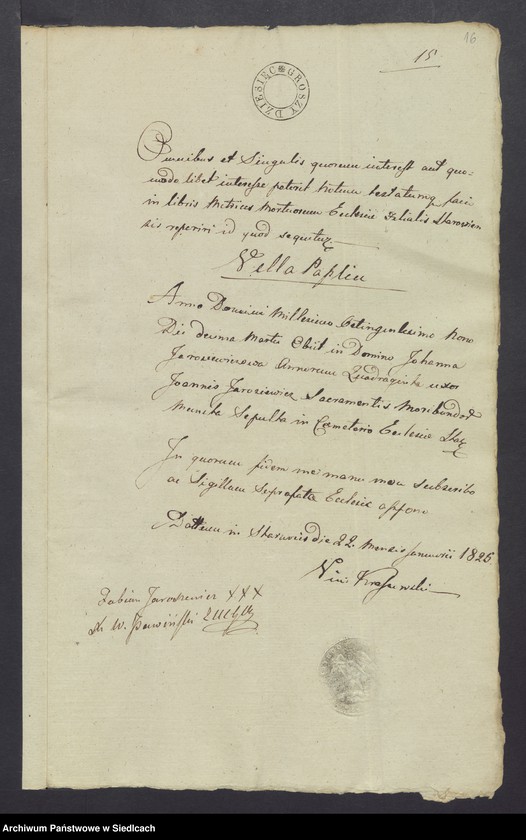 16
15
DZIESIĘC GROSZY
Omnibus et Singulis quorum interest aut quo:
modo libet interesse poterit notum testatumq facio
in libris Metrices Mortuorum Ecclesie Filialis
sis reperiri id quod sequitur
Villa Paplin
Anno Domini Millesimo Octingentesimo Nono
Die decima Martii Obiit in Domino Johanna
Jarosiewiczowa Annorum Quadraginta uxor
Joannis Jarosiewicz Sacramentis Moribundor
Munita Sepulta in Cemeterio Ecclesie
In quorum fidem me manu mea subscribo
ac Sigillum Ecclesie appono
Datum in die 22 Mensis Januarii 1826
Fabian Jaroszewicz XXX
Archiwum Państwowe w Siedlcach